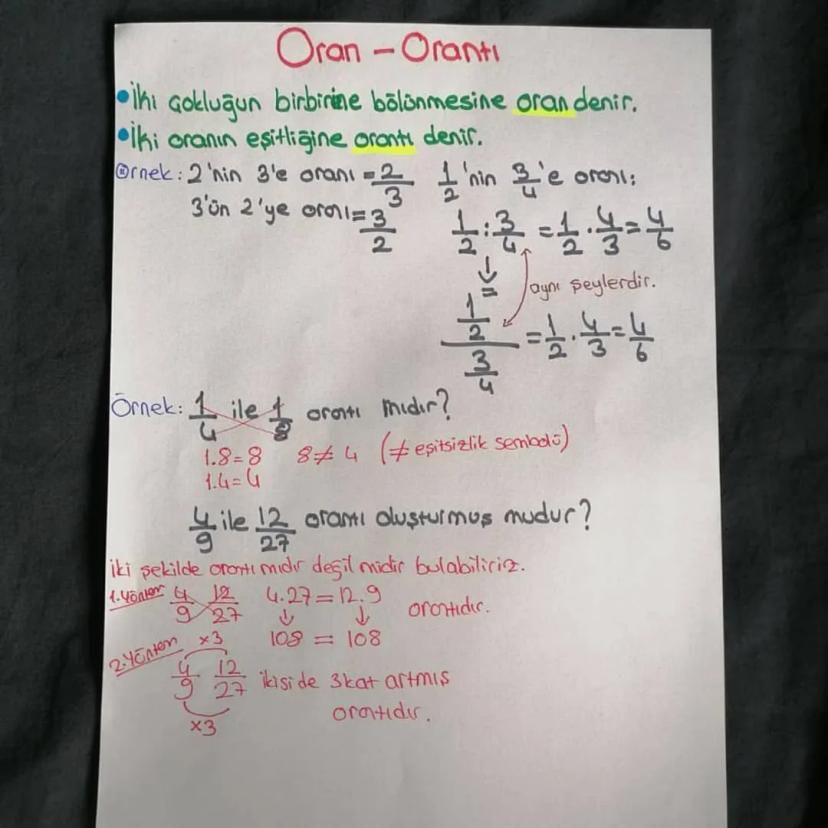 Oran - Orantı
• İki çokluğun birbirine bölünmesine oran denir.
• İki oranın eşitliğine orantı denir.
Örnek: 2'nin 3'e oranı = 2/3
3'ün 2'ye oranı = 3/2
1/2'nin 3/4'e oranı:
1/2 : 3/4 = 1/2 . 4/3 = 4/6
↓
=
aynı şeylerdir.
1/2 / 3/4 = 1/2 . 4/3 = 4/6
Örnek: 1/4 ile 1/8 orantı mıdır?
1.8=8 8≠4 (≠ eşitsizlik sembolü)
1.4=4
4/9 ile 12/27 orantı oluşturmuş mudur?
İki şekilde orantı mıdır değil midir bulabiliriz.
1.Yöntem 4/9 12/27 4.27=12.9 orantıdır.
↓ ↓
108 = 108
2.Yöntem x3
4/9 12/27 ikiside 3 kat artmış
x3 orantıdır.